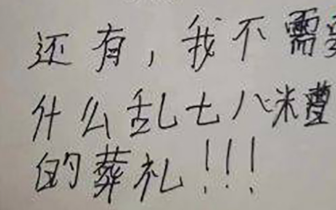 还有，我不需要
什么乱七八米遭
的葬礼!!!